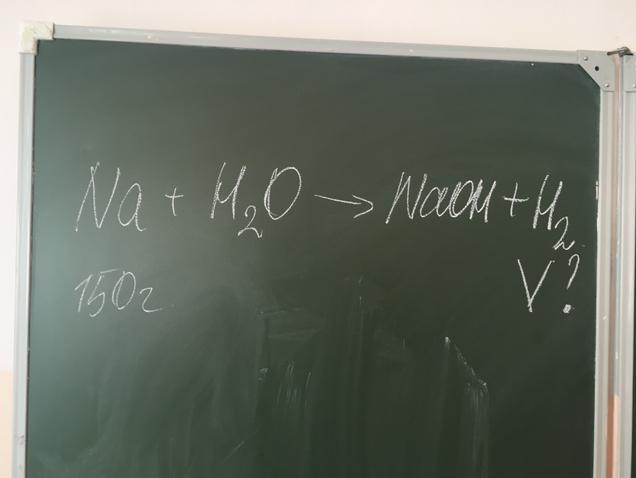 Na + H₂O → NaOH + H₂
150г V?